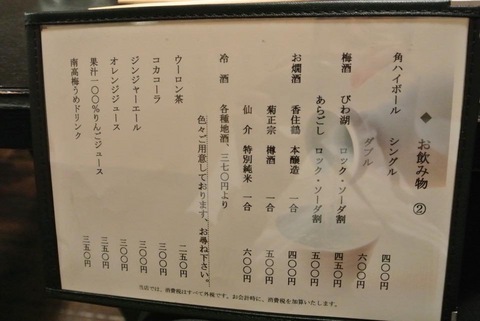 ◆ お飲み物 ②
角ハイボール シングル 四〇〇円
ダブル 六〇〇円
梅酒 びわ湖 ロック・ソーダ割 四五〇円
あらごし ロック・ソーダ割 五〇〇円
お燗酒 香住鶴 本醸造 一合 四〇〇円
菊正宗 樽酒 一合 五〇〇円
仙介 特別純米 一合 六〇〇円
冷酒 各種地酒、三七〇円より
色々ご用意しております、お尋ね下さい。
ウーロン茶 二五〇円
コカコーラ 三〇〇円
ジンジャーエール 三〇〇円
オレンジジュース 三〇〇円
果汁一〇〇%りんごジュース 三五〇円
南高梅うめドリンク 三五〇円
当店では、消費税はすべて外税です。お会計時に、消費税を加算いたします。